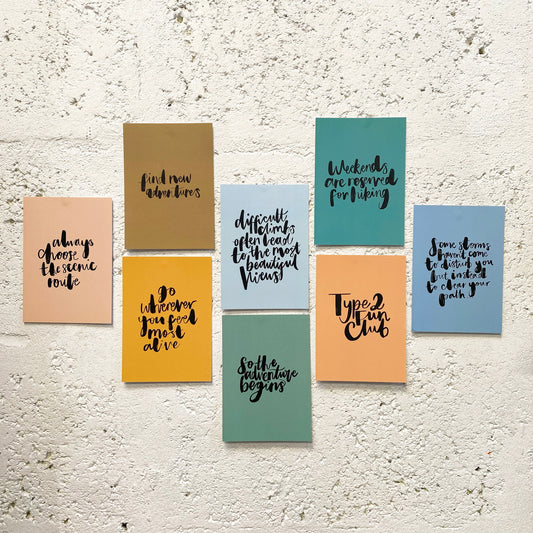 always
choose
the scenic
route
find new
adventures
go
wherever
you feel
most
alive
difficult
climbs
often lead
to the most
beautiful
views!
So the
adventure
begins
Weekends
are reserved
for hiking
Type 2
Fun
Club
Some storms
havent come
to disturb you
but instead
to clear your
path